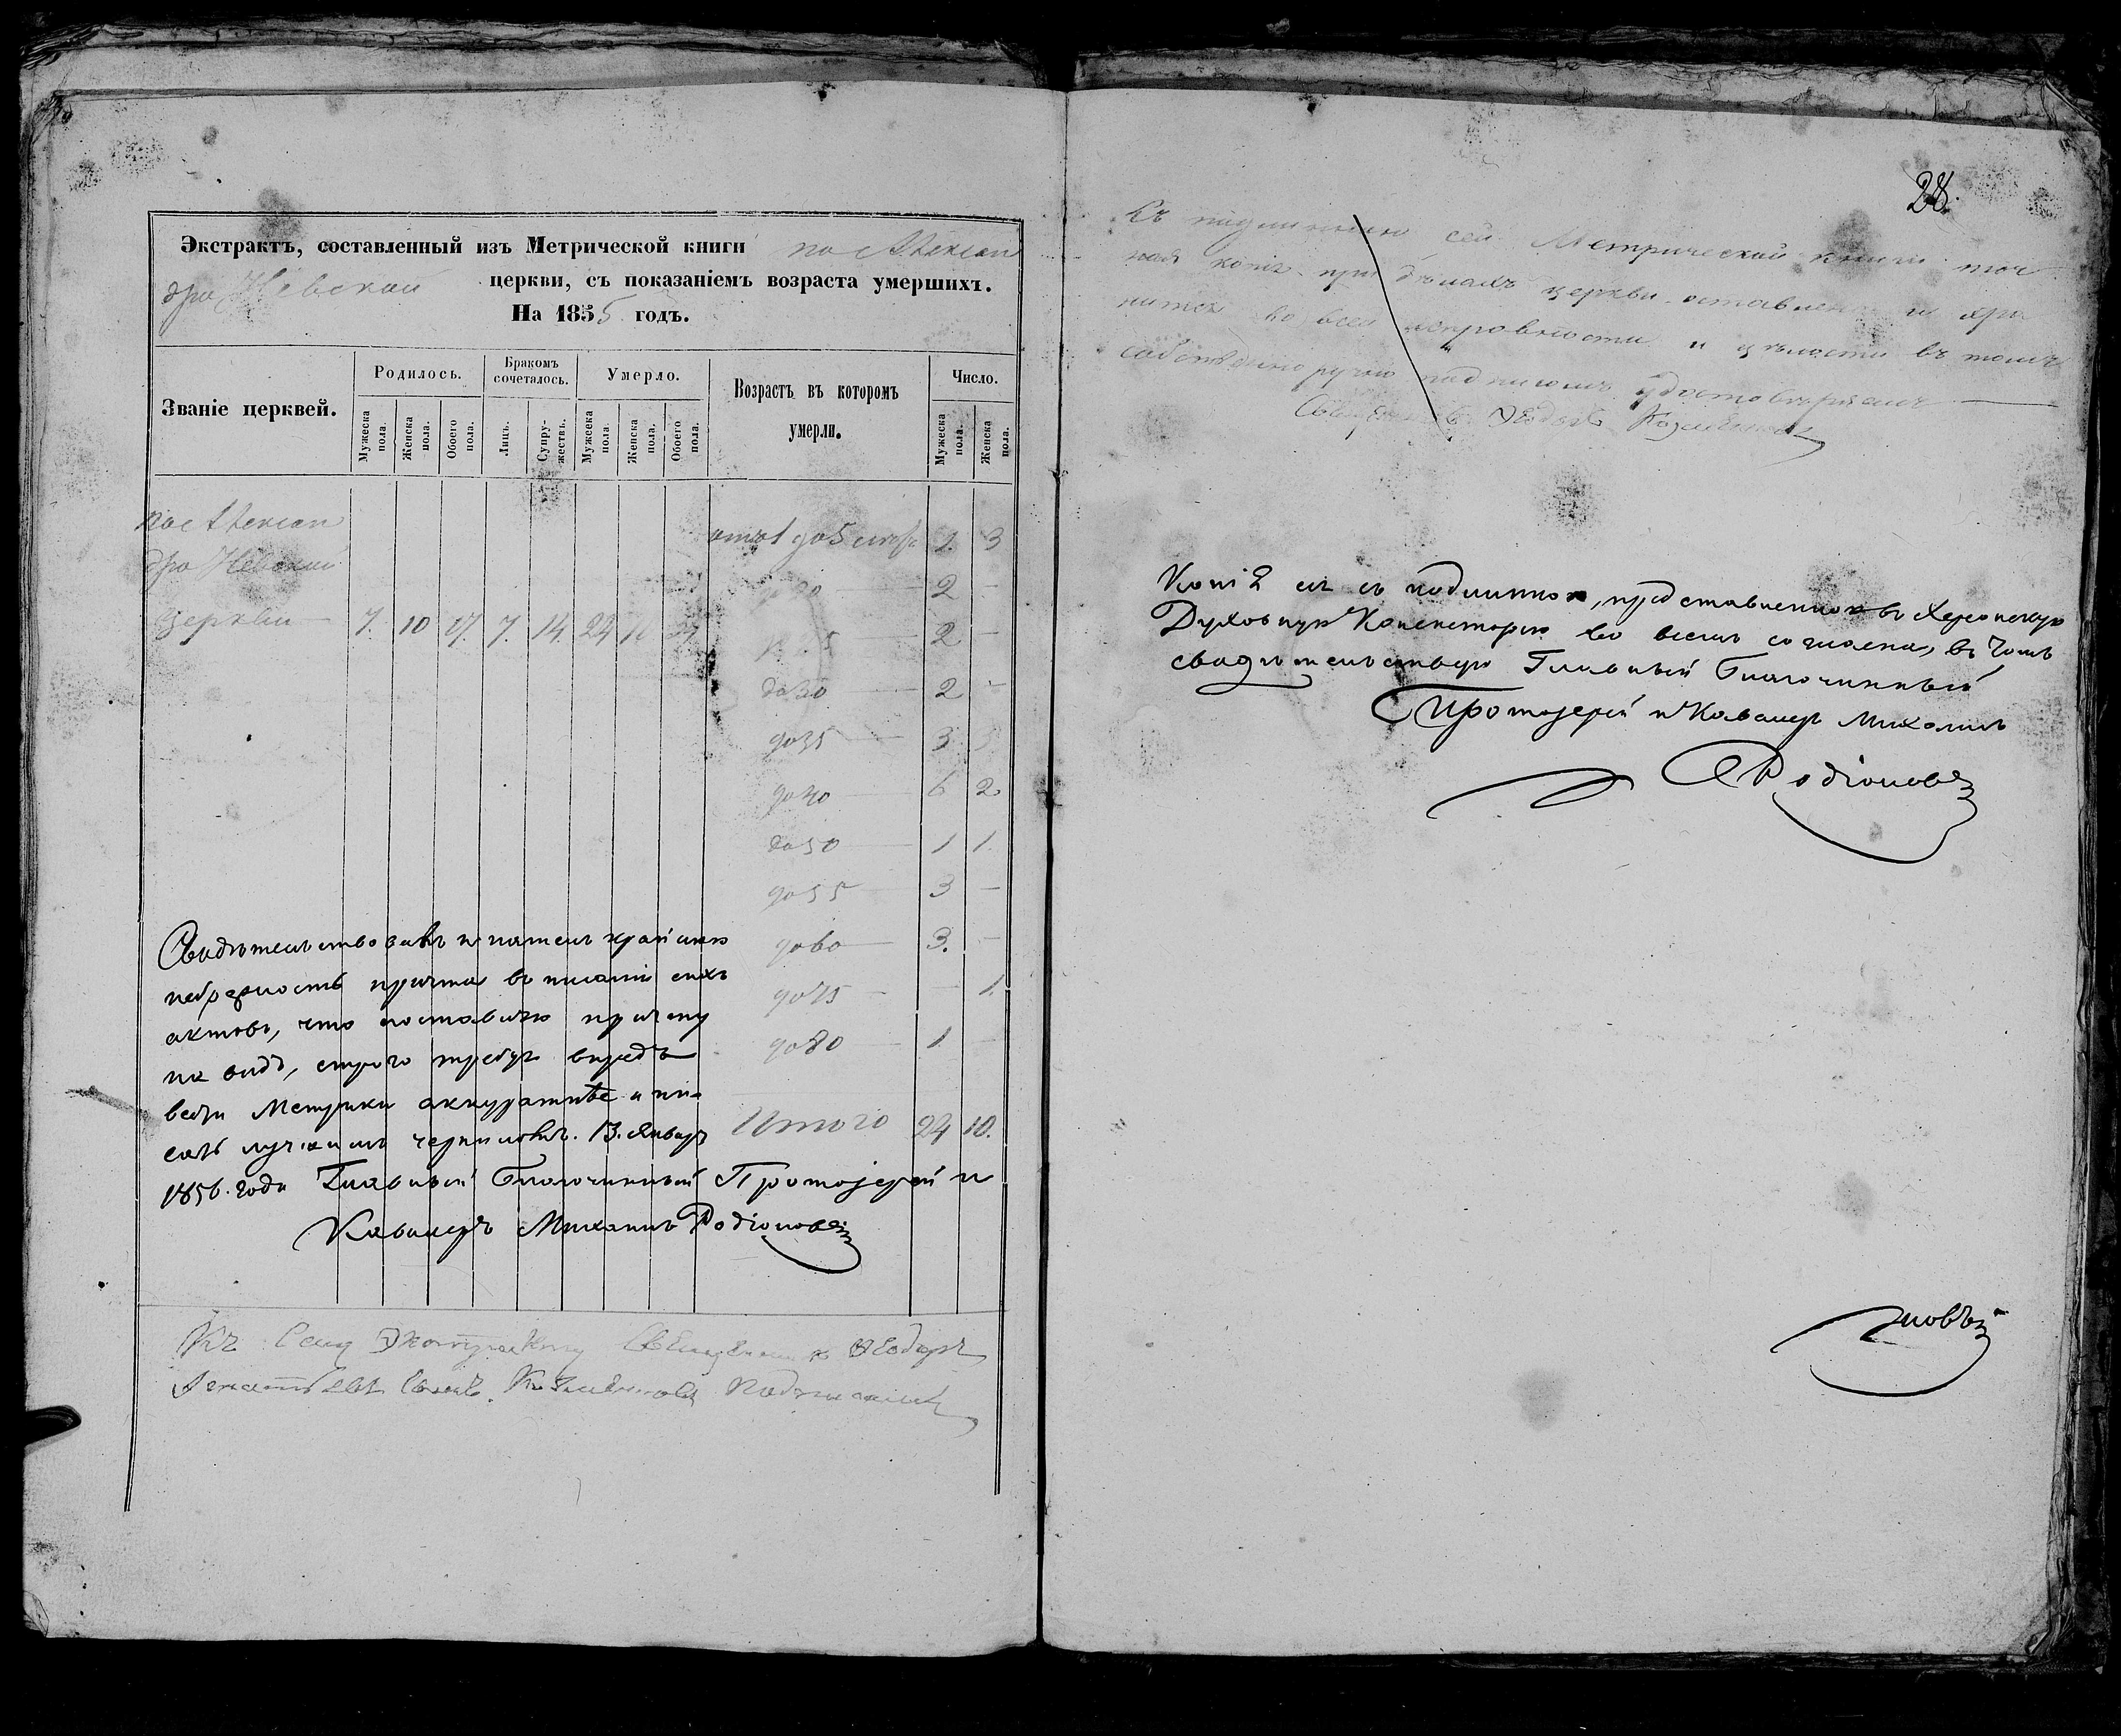 Экстрактъ, составленный изъ Метрической книги по Алексан
дро Невской церкви, съ показаніемъ возраста умершихъ.
На 1855 годъ.
Званіе церквей.
Родилось.
Бракомъ сочеталось.
Умерло.
Возрастъ въ которомъ умерли.
Число.
Мужеска пола.
Женска пола.
Обоего пола.
Лицъ.
Супружествъ.
Мужеска пола.
Женска пола.
Обоего пола.
Мужеска пола.
Женска пола.
по Алексан
дро Невской
церкви 7. 10 17. 7. 14. 24 10
отъ 1 до 5 1. 3
2 -
5 2 -
до 30 2 -
до 35 3 3
до 40 6 2.
до 50 1 1.
до 55 3 -
до 60 3. -
до 75 - 1.
до 80 1 -
Итого 24 10.
Свидѣтельствовавъ и нашелъ крайнюю
небрежность причта въ писаніи сихъ
актовъ, что поставляю причту
на видъ, строго требуя впредь
вести Метрики аккуратнѣе и пи-
сать лучшимъ чернилом. 13. Января
1856. года Главный Благочинный Протоіерей и
Кавалеръ Михаилъ Родіоновъ
Къ Сему Экстракту Священникъ Ѳеодоръ
Козменковъ Подписалъ
28.
Къ подлинною сей Метрической книги точ
ная копія при дѣлахъ церкви оставлена и хра
нится во всей исправности и цѣлости въ томъ
собственноручно подписомъ удостовѣряемъ
Священникъ Ѳеодоръ Козменковъ
Копія сія съ подлинною, представленною въ Херсонскую
Духовную Консисторію во всемъ согласна, въ чомъ
свидѣтельствую Главный Благочинный
Протоіерей и Кавалеръ Михаилъ
Родіоновъ
новъ